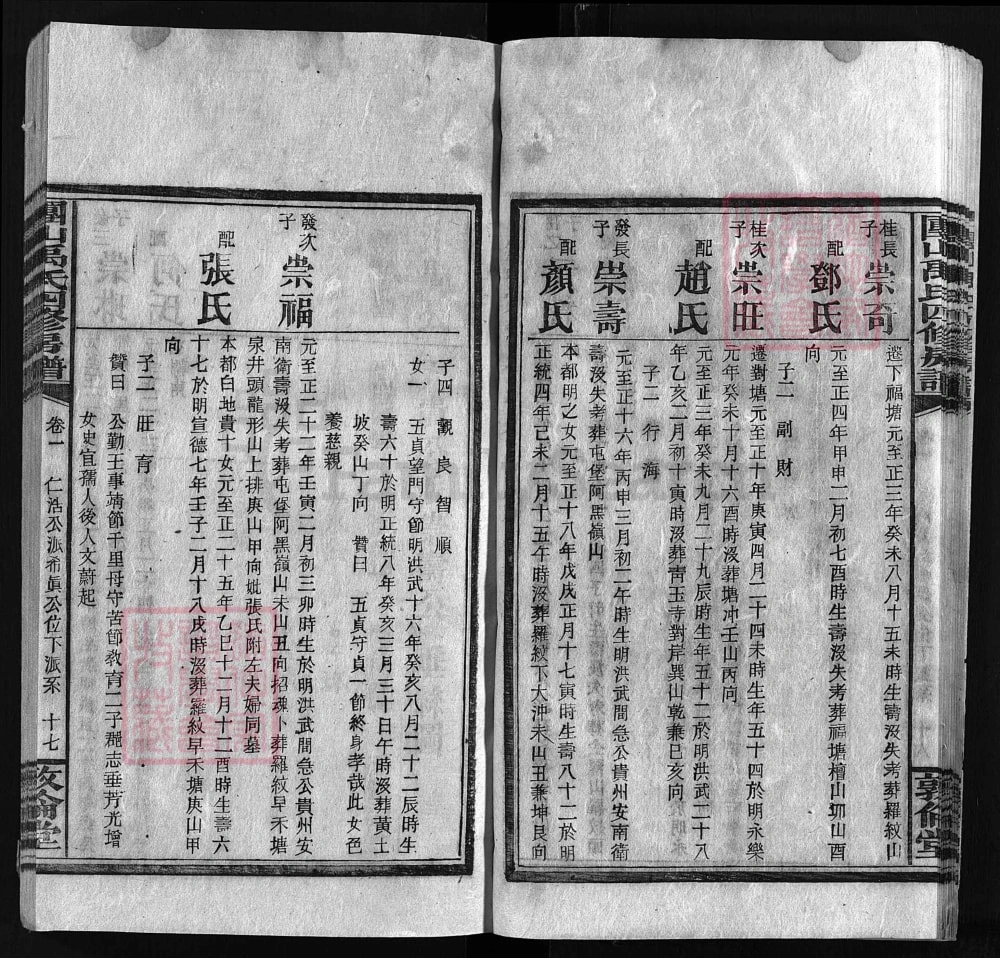 桂長子 崇奇
遷下福塘元至正三年癸未八月十五未時生壽沒失考葬羅紋山
向
配 鄧氏
元至正四年甲申二月初七酉時生壽沒失考葬福塘檀山卯山酉
子二 副 財
桂次子 崇旺
遷對塘元至正十年庚寅四月二十四未時生年五十四於明永樂
元年癸未十月十六酉時沒葬塘冲壬山丙向
配 趙氏
元至正三年癸未九月二十九辰時生年五十二於明洪武二十八
年乙亥二月初十寅時沒葬靑玉寺對岸巽山乾兼巳亥向
子二 行 海
發長子 崇壽
元至正十六年丙申三月初二午時生明洪武間急公貴州安南衛
壽沒失考葬屯堡阿黑嶺山
配 顏氏
本都明之女元至正十八年戊戌正月十七寅時生壽八十二於明
正統四年己未二月十五午時沒葬羅紋下大沖未山丑兼坤艮向
敦倫堂
子四 觀 良 智 順
女一 五貞望門守節明洪武十六年癸亥八月二十二辰時生
壽六十於明正統八年癸亥三月三十日午時沒葬黃土
坡癸山丁向 贊曰 五貞守貞一節終身孝哉此女色
養慈親
發次子 崇福
元至正二十二年壬寅二月初三卯時生於明洪武間急公貴州安
南衛壽沒失考葬屯堡阿黑嶺山未山丑向招魂卜葬羅紋早禾塘
泉井頭龍形山上排庚山甲向妣張氏附左夫婦同墓
配 張氏
本都白地貴十女元至正二十五年乙巳十二月十二酉時生壽六
十七於明宣德七年壬子二月十八戌時沒葬羅紋早禾塘庚山甲
向
子二 旺 育
贊曰 公勤王事靖節千里母守苦節敎育二子郡志垂芳光增
女史宜孺人後人文蔚起
團山萬氏四修房譜
卷一 仁浩公派希眞公位下派系 十七
敦倫堂